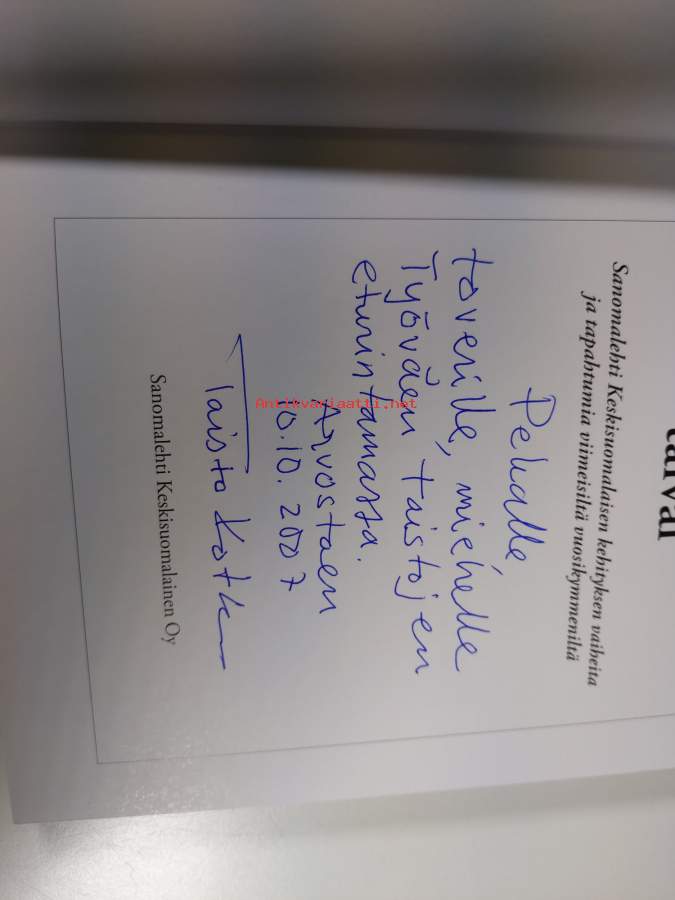 taival
Sanomalehti Keskisuomalaisen kehityksen vaiheita
ja tapahtumia viimeisiltä vuosikymmeniltä
Pekalle,
toverille, miehelle
Työväen taistojen
eturintamassa.
Arvostaen
10.10. 2007
Taisto
Sanomalehti Keskisuomalainen Oy
Antikvariaatti.net